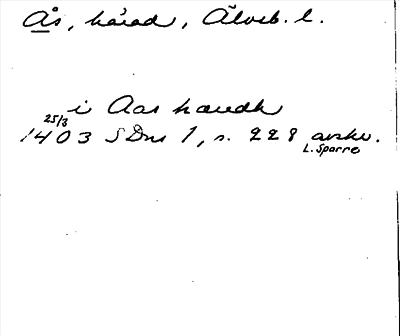 Ås, härad, Älvsb. l.
i Aas hæredh
25/3
1403 SDns 1, s. 228 avskr.
L. Sparre